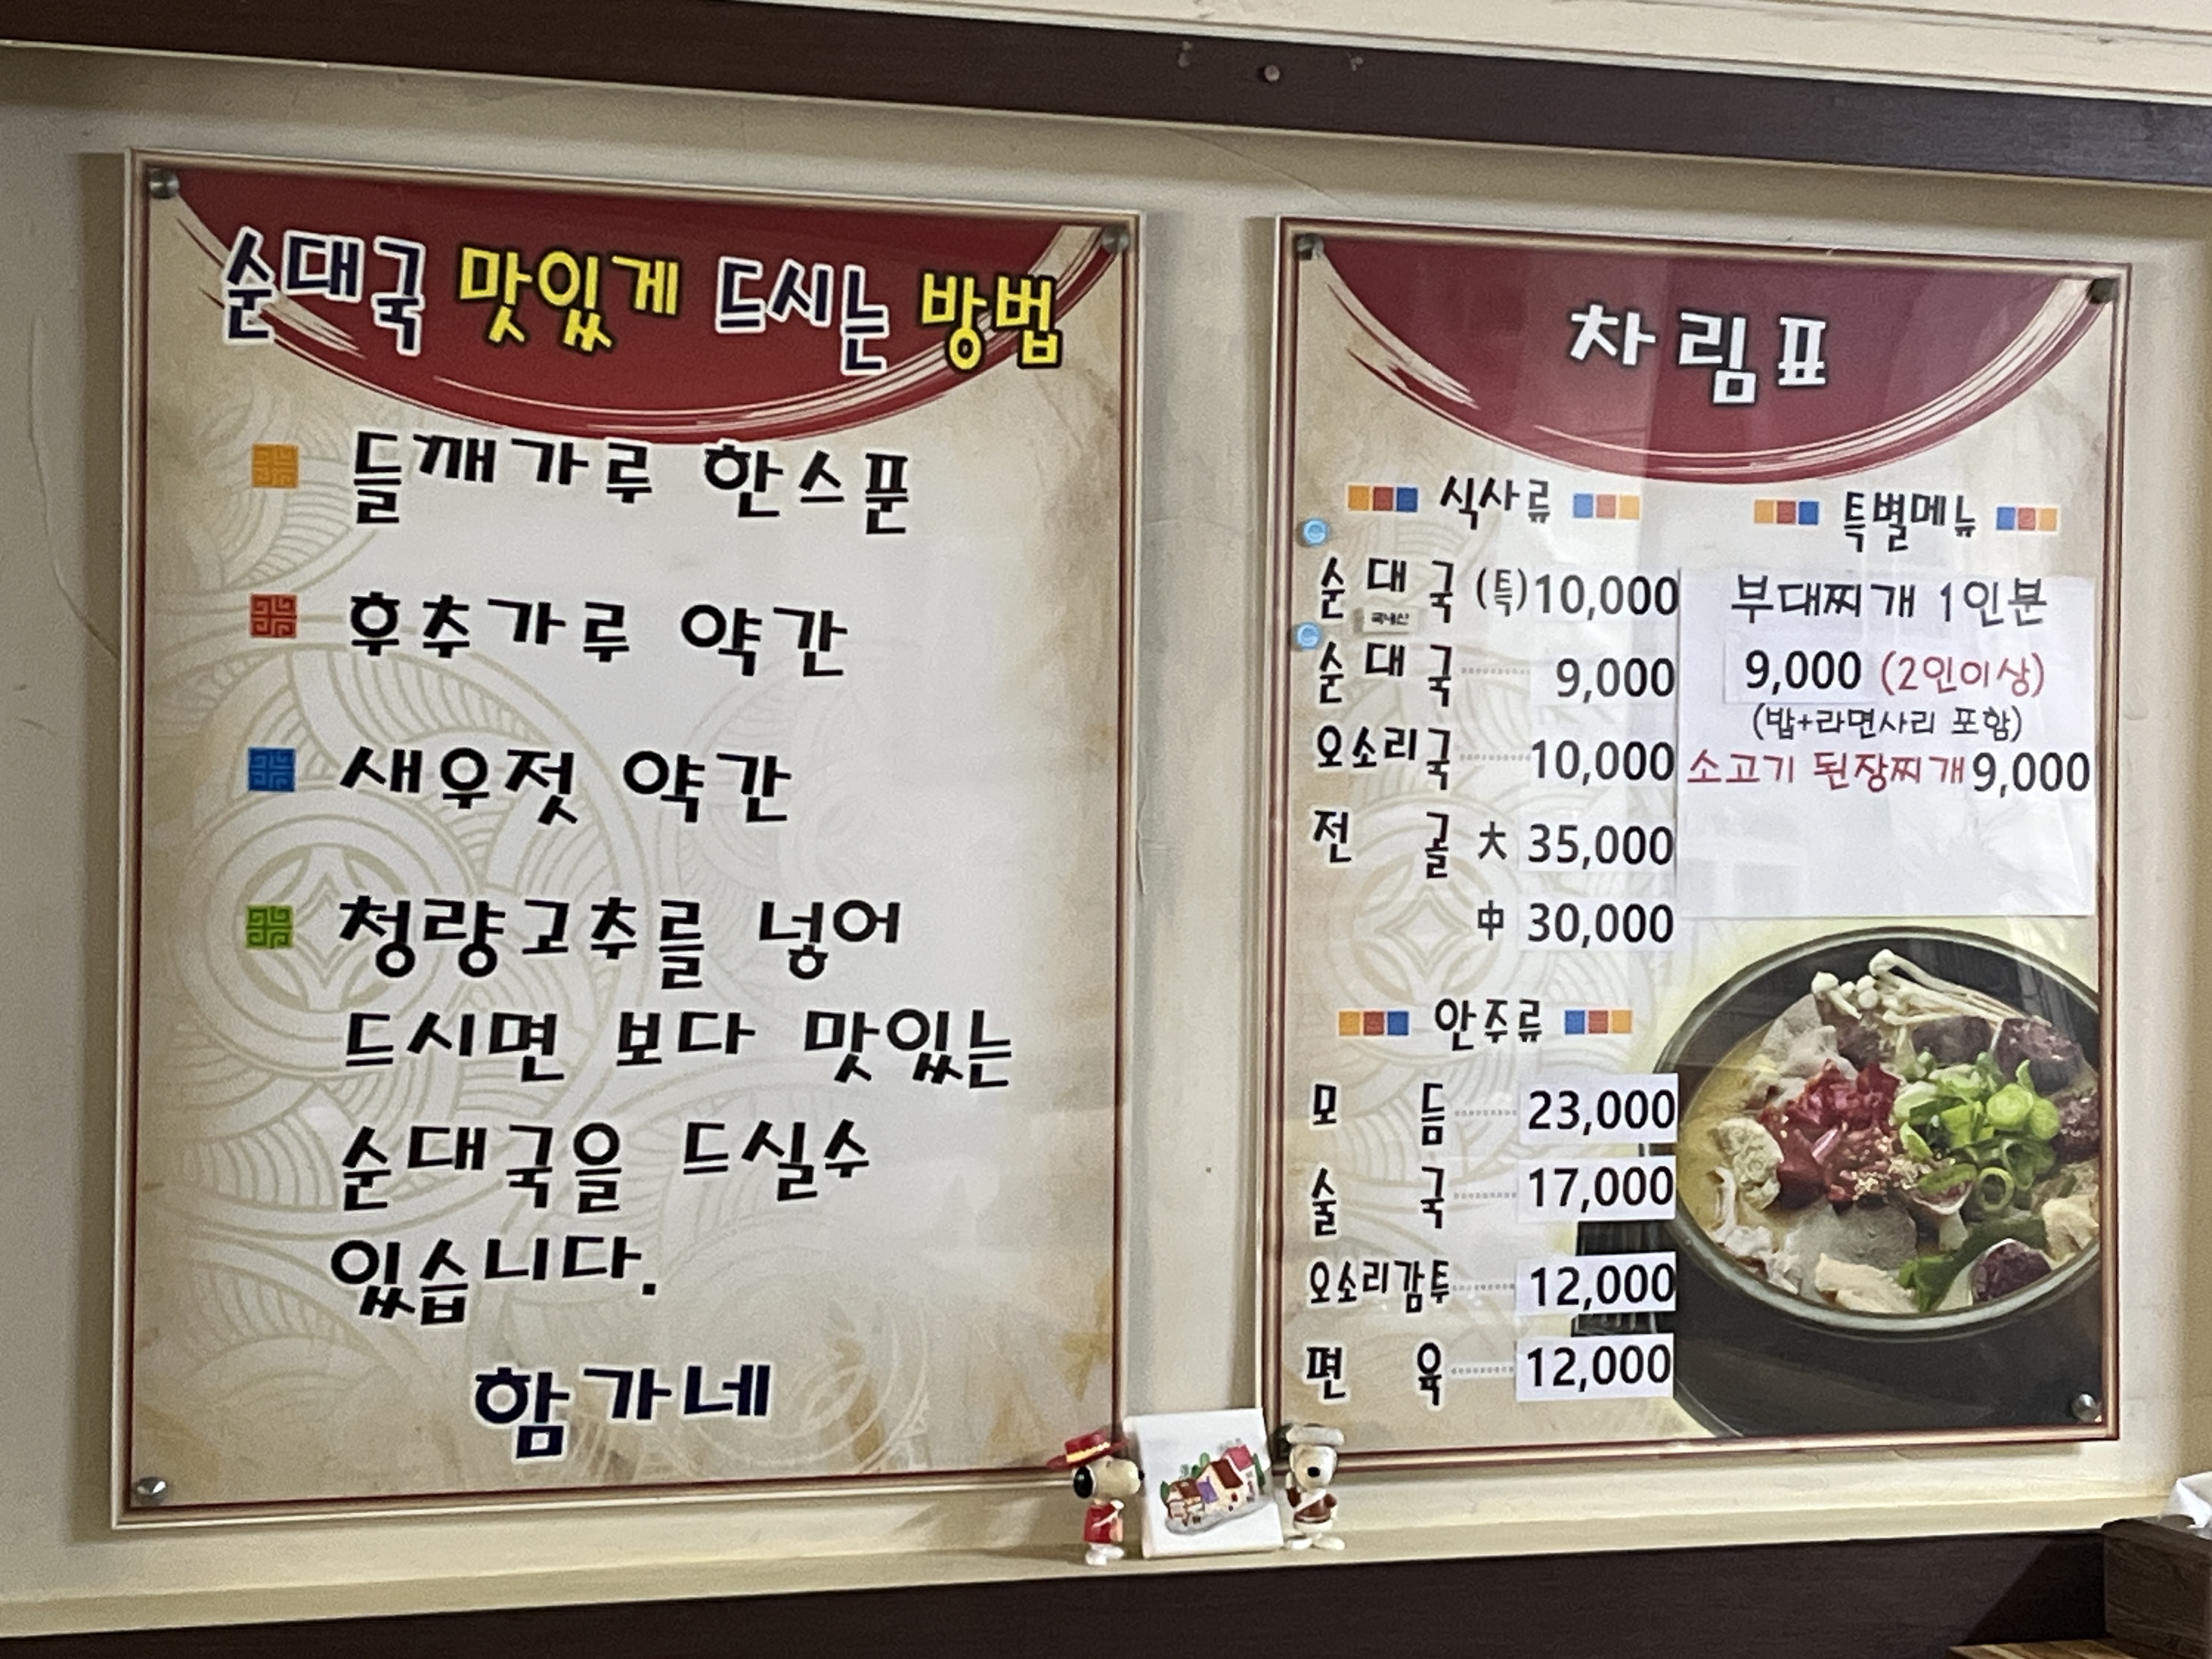 순대국 맛있게 드시는 방법
들깨가루 한스푼
후추가루 약간
새우젓 약간
청량고추를 넣어
드시면 보다 맛있는
순대국을 드실수
있습니다.
함가네
차림표
식사류
순대국 (특) 10,000
국내산
순대국 9,000
오소리국 10,000
전골 大 35,000
中 30,000
특별메뉴
부대찌개 1인분
9,000 (2인이상)
(밥+라면사리 포함)
소고기 된장찌개 9,000
안주류
모듬 23,000
술국 17,000
오소리감투 12,000
편육 12,000